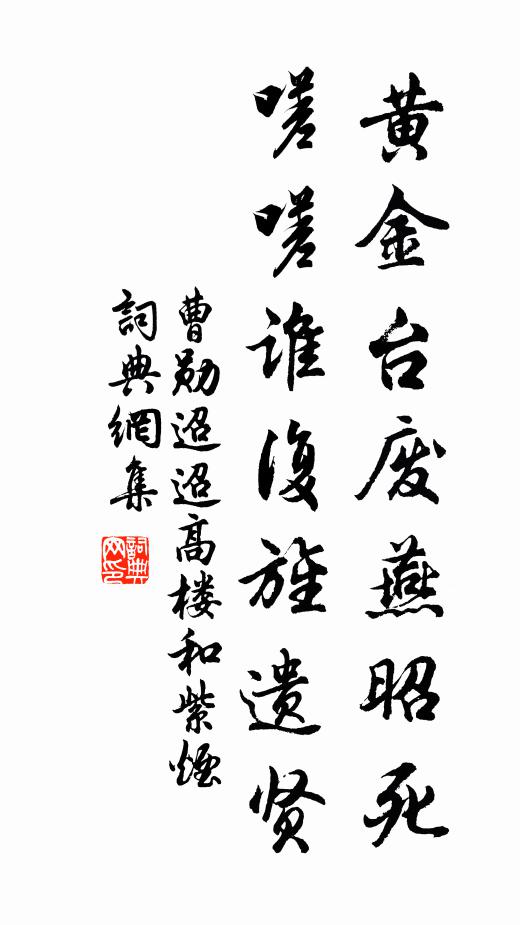 黄金台废燕昭死
嗟嗟谁复旌遗贤
曹勋迢迢高楼和紫烟
詞典網集
詞典网印